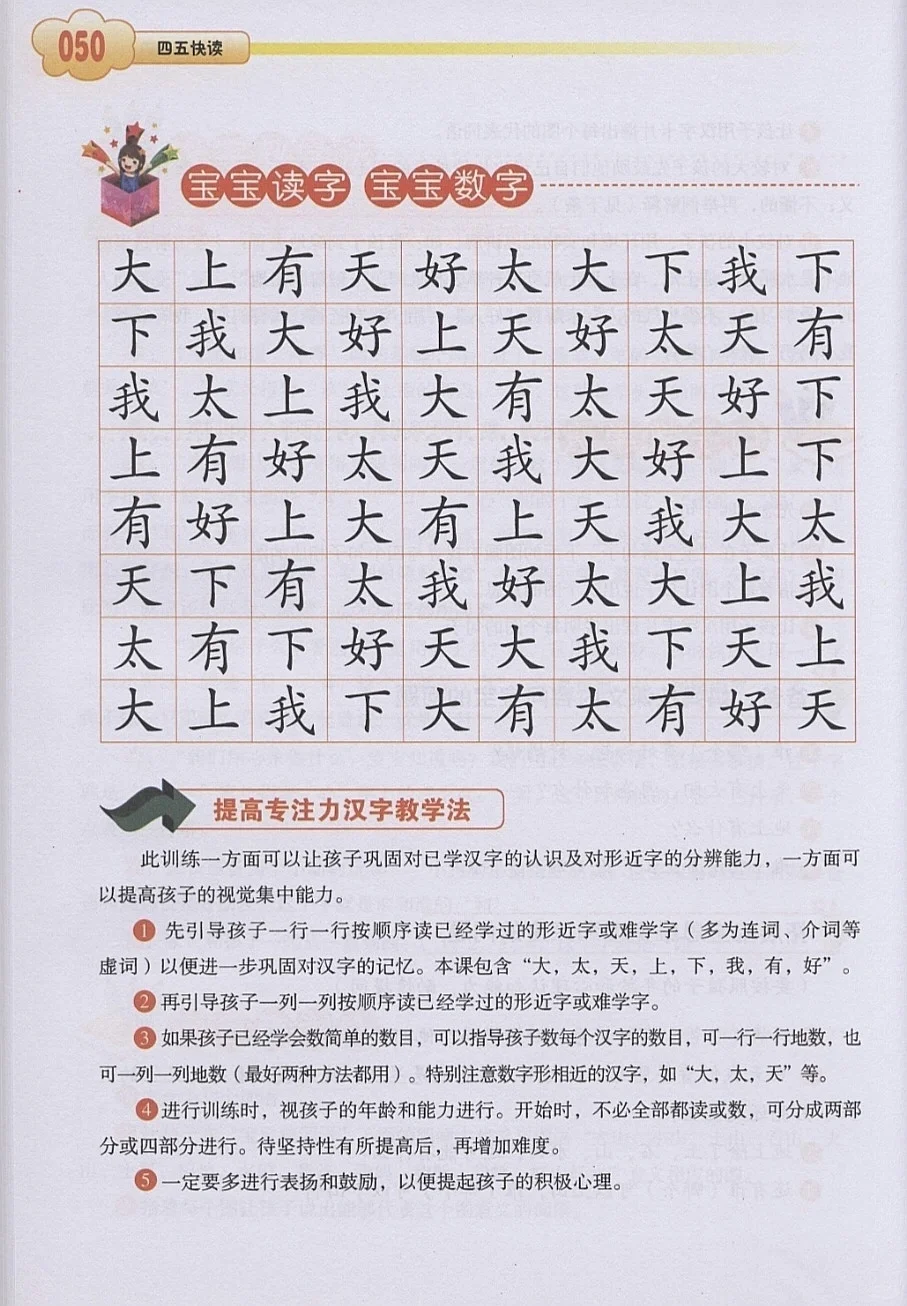 050 四五快读
宝宝读字 宝宝数字
大 上 有 天 好 太 大 下 我 下
下 我 大 好 上 天 好 太 天 有
我 太 上 我 大 有 太 天 好 下
上 有 好 太 天 我 大 好 上 下
有 好 上 大 有 上 天 我 大 太
天 下 有 太 我 好 太 大 上 我
太 有 下 好 天 大 我 下 天 上
大 上 我 下 大 有 太 有 好 天
提高专注力汉字教学法
此训练一方面可以让孩子巩固对已学汉字的认识及对形近字的分辨能力，一方面可
以提高孩子的视觉集中能力。
❶ 先引导孩子一行一行按顺序读已经学过的形近字或难学字（多为连词、介词等
虚词）以便进一步巩固对汉字的记忆。本课包含“大，太，天，上，下，我，有，好”。
❷ 再引导孩子一列一列按顺序读已经学过的形近字或难学字。
❸ 如果孩子已经学会数简单的数目，可以指导孩子数每个汉字的数目，可一行一行地数，也
可一列一列地数（最好两种方法都用）。特别注意数字形相近的汉字，如“大，太，天”等。
❹ 进行训练时，视孩子的年龄和能力进行。开始时，不必全部都读或数，可分成两部
分或四部分进行。待坚持性有所提高后，再增加难度。
❺ 一定要多进行表扬和鼓励，以便提起孩子的积极心理。